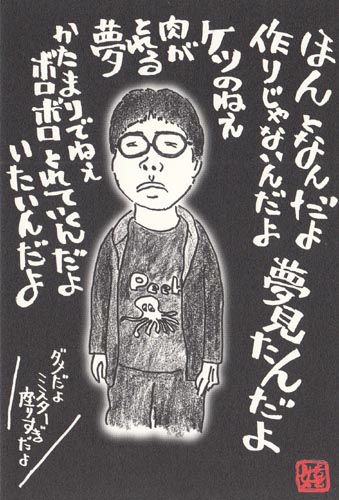 ほんとなんだよ
作りじゃないんだよ
夢見たんだよ
ケツのねぇ
肉が
とれる
夢
かたまりでねぇ
ボロボロとれていくんだよ
いたいんだよ
Peek
ダメだよ
ミスター
座りすぎ
だよ